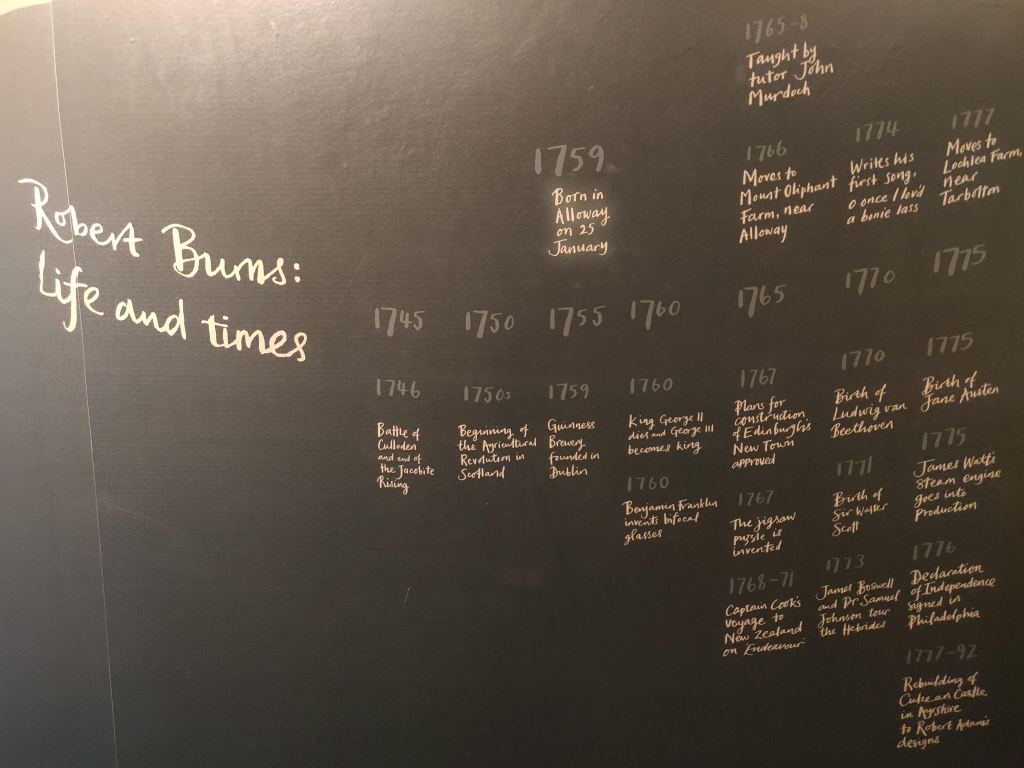 Robert Burns:
Life and times
1759
Born in
Alloway
on 25
January
1765-8
Taught by
tutor John
Murdoch
1766
Moves to
Mount Oliphant
Farm, near
Alloway
1774
Writes his
first song,
O once I lov'd
a bonie lass
1777
Moves to
Lochlea Farm,
near
Tarbolton
1745
1750
1755
1760
1765
1770
1775
1746
Battle of
Culloden
and end of
the Jacobite
Rising
1750s
Beginning of
the Agricultural
Revolution in
Scotland
1759
Guinness
Brewery
founded in
Dublin
1760
King George II
dies and George III
becomes king
1760
Benjamin Franklin
invents bifocal
glasses
1767
Plans for
construction
of Edinburgh's
New Town
approved
1767
The jigsaw
puzzle is
invented
1768-71
Captain Cook's
voyage to
New Zealand
on Endeavour
1770
Birth of
Ludwig van
Beethoven
1771
Birth of
Sir Walter
Scott
1773
James Boswell
and Dr Samuel
Johnson tour
the Hebrides
1775
Birth of
Jane Austen
1775
James Watt's
steam engine
goes into
production
1776
Declaration
of Independence
signed in
Philadelphia
1777-92
Rebuilding of
Culzean Castle
in Ayrshire
to Robert Adam's
designs